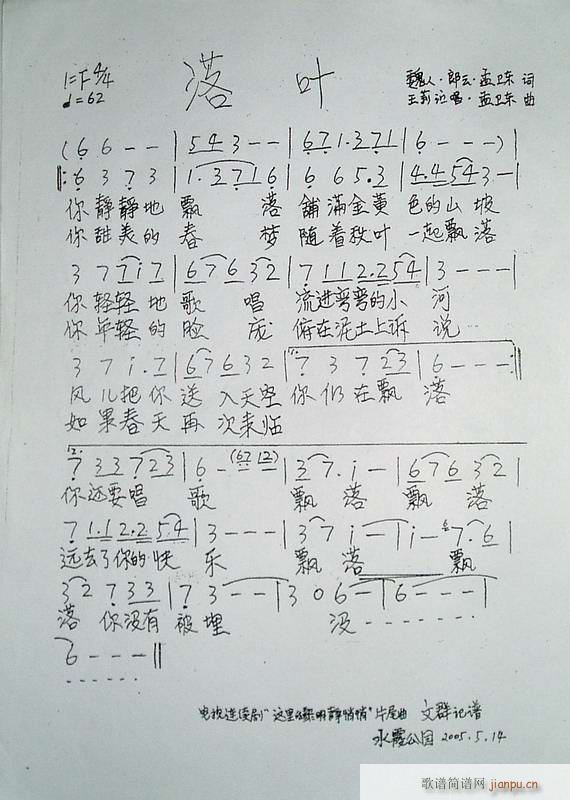 落叶
1=F 4/4
♩=62
魏人·郎云·孟卫东 词
王莉记唱·孟卫东 曲
(6 6 - - | 5 4 3 - - | 6 7 1. 3 7 1 | 6 - - -)
‖: 6 3 7 3 | 1. 3 7 1 6 | 6 6 5. 3 | 4. 4 5 4 3 - |
你静静地 飘 落 铺满金黄 色的山坡
你甜美的 春 梦 随着秋叶 一起飘落
3 7 7 i 7 | 6 7 6 3 2 | 7 1 1 2. 2 5 4 | 3 - - - |
你轻轻地歌 唱 流进弯弯的小 河
你年轻的脸 庞 俯在泥土上诉 说
3 7 i. 7 | 6 7 6 3 2 | 1. 7 3 7 2 3 | 6 - - - :‖
风儿把你送 入天空 你们在飘 落
如果春天再 次来临
2. 7 3 3 7 2 3 | 6 - (6 7 1 2) | 3 7. i - | 6 7 6 3 2 |
你还要唱 歌 飘 落 飘 落
7 1. 1 2. 2 5 4 | 3 - - - | 3 7 i - | i - 7. 6 |
远去了你的快 乐 飘 落 飘
3 2 7 3 3 | 7 3 - - | 3 0 6 - | 6 - - - |
落 你没有 被埋 没 - - - - - - -
6 - - - ‖
- - - - - -
电视连续剧"这里的黎明静悄悄"片尾曲 文群记谱
水霞公园 2005.5.14
歌谱简谱网
jianpu.cn